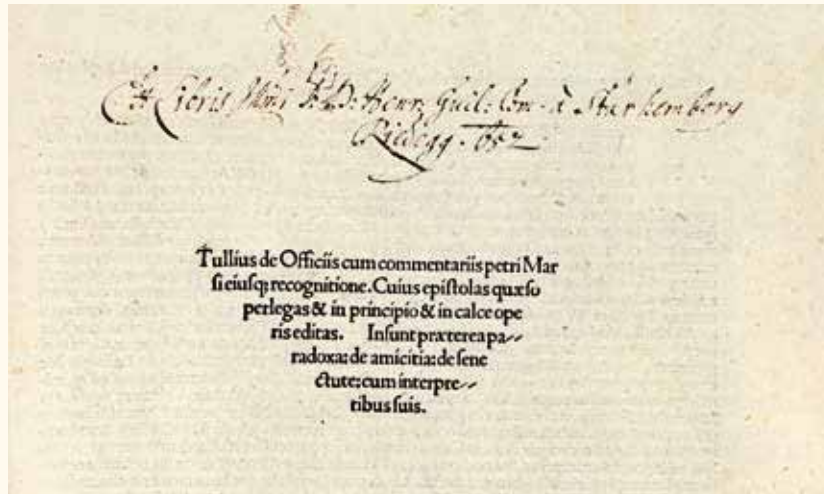 Ex Libris Illmi D: D: Henr: Guil: Com: à Starhemberg
Riedegg. 1652
Tullius de Officiis cum commentariis petri Mar
si eiusq; recognitione. Cuius epistolas quæso
perlegas & in principio & in calce ope
ris editas. Insunt præterea pa⸗
radoxa: de amicitia: de sene
ctute: cum interpre⸗
tibus suis.